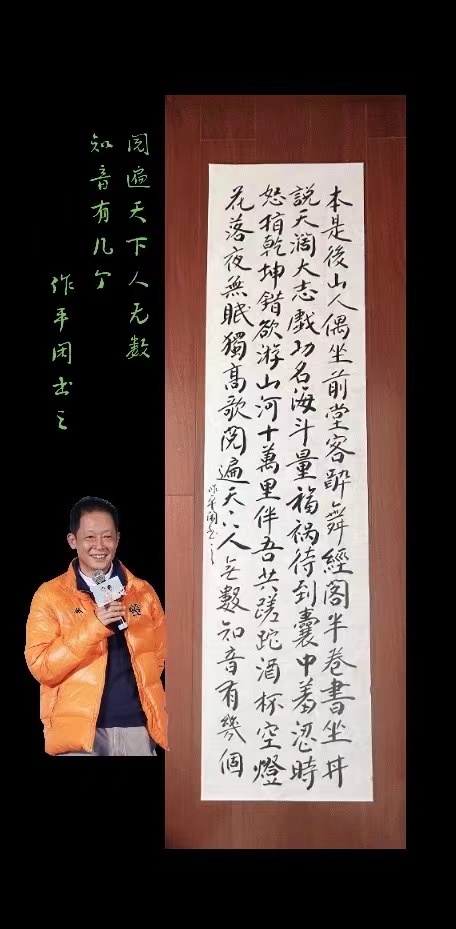 本是後山人偶坐前堂客醉舞經閣半卷書坐井
說天濶大志戲功名海斗量福祸待到囊中羞澀時
怒指乾坤錯欲游山河十萬里伴吾共蹉跎酒杯空燈
花落夜無眠獨高歌阅遍天下人无數知音有幾個
作平闲书之
阅遍天下人无数
知音有几个
作平闲书之